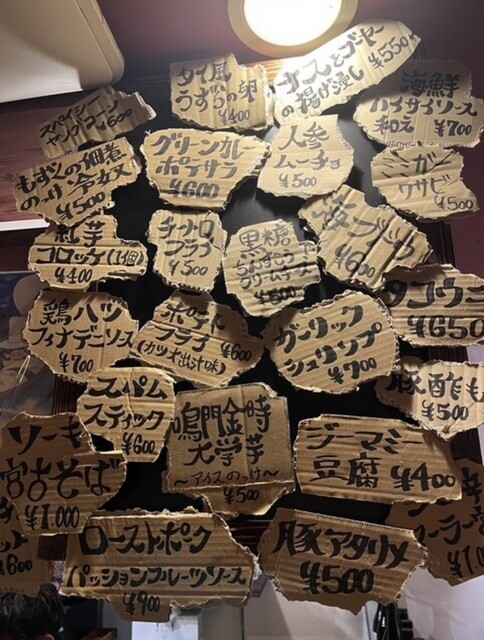 タイ風
うずらの卵
¥400
ナスとゴーヤー
の揚げ浸し
¥550
スパイシー
ヤングコーン
¥600
海鮮
ハイサイソース
和え ¥700
もずくの佃煮
のっけ冷奴
¥500
グリーンカレー
ポテサラ
¥600
人参
ムーチョ
¥500
ミミガー
ワサビ
¥500
紅芋
コロッケ(1個)
¥400
フライ
¥500
黒糖
クリームチーズ
¥600
海ブドウ
¥600
タコウ
¥650
鶏ハツ
フィナデニソース
¥700
ポテト
フライ
(カツオ出汁味)
¥600
ガーリック
シュリンプ
¥700
豚酢もつ
¥500
スパム
スティック
¥600
鳴門金時
大学芋
〜アイスのっけ〜
¥500
ジーマミー
豆腐 ¥400
ソーキ
宮古そば
¥1.000
ローストポーク
パッションフルーツソース
¥900
豚アタリメ
¥500